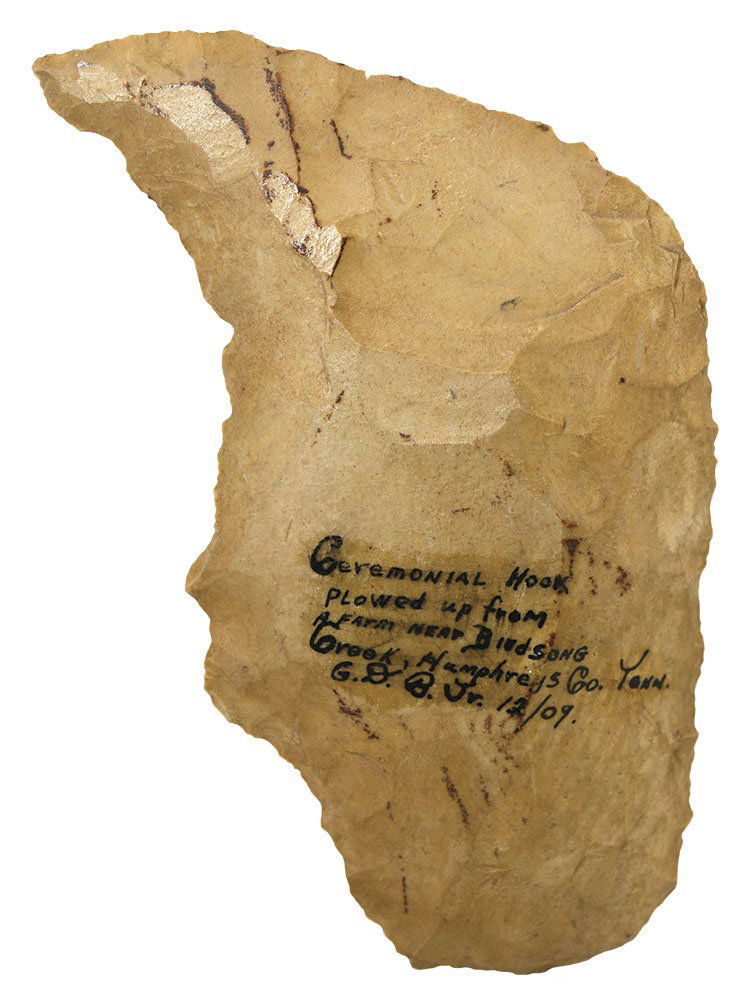 Ceremonial Hook
Plowed up from
A Farm near Birdsong
Creek, Humphreys Co. Tenn.
G.D.B. Jr. 12/09.